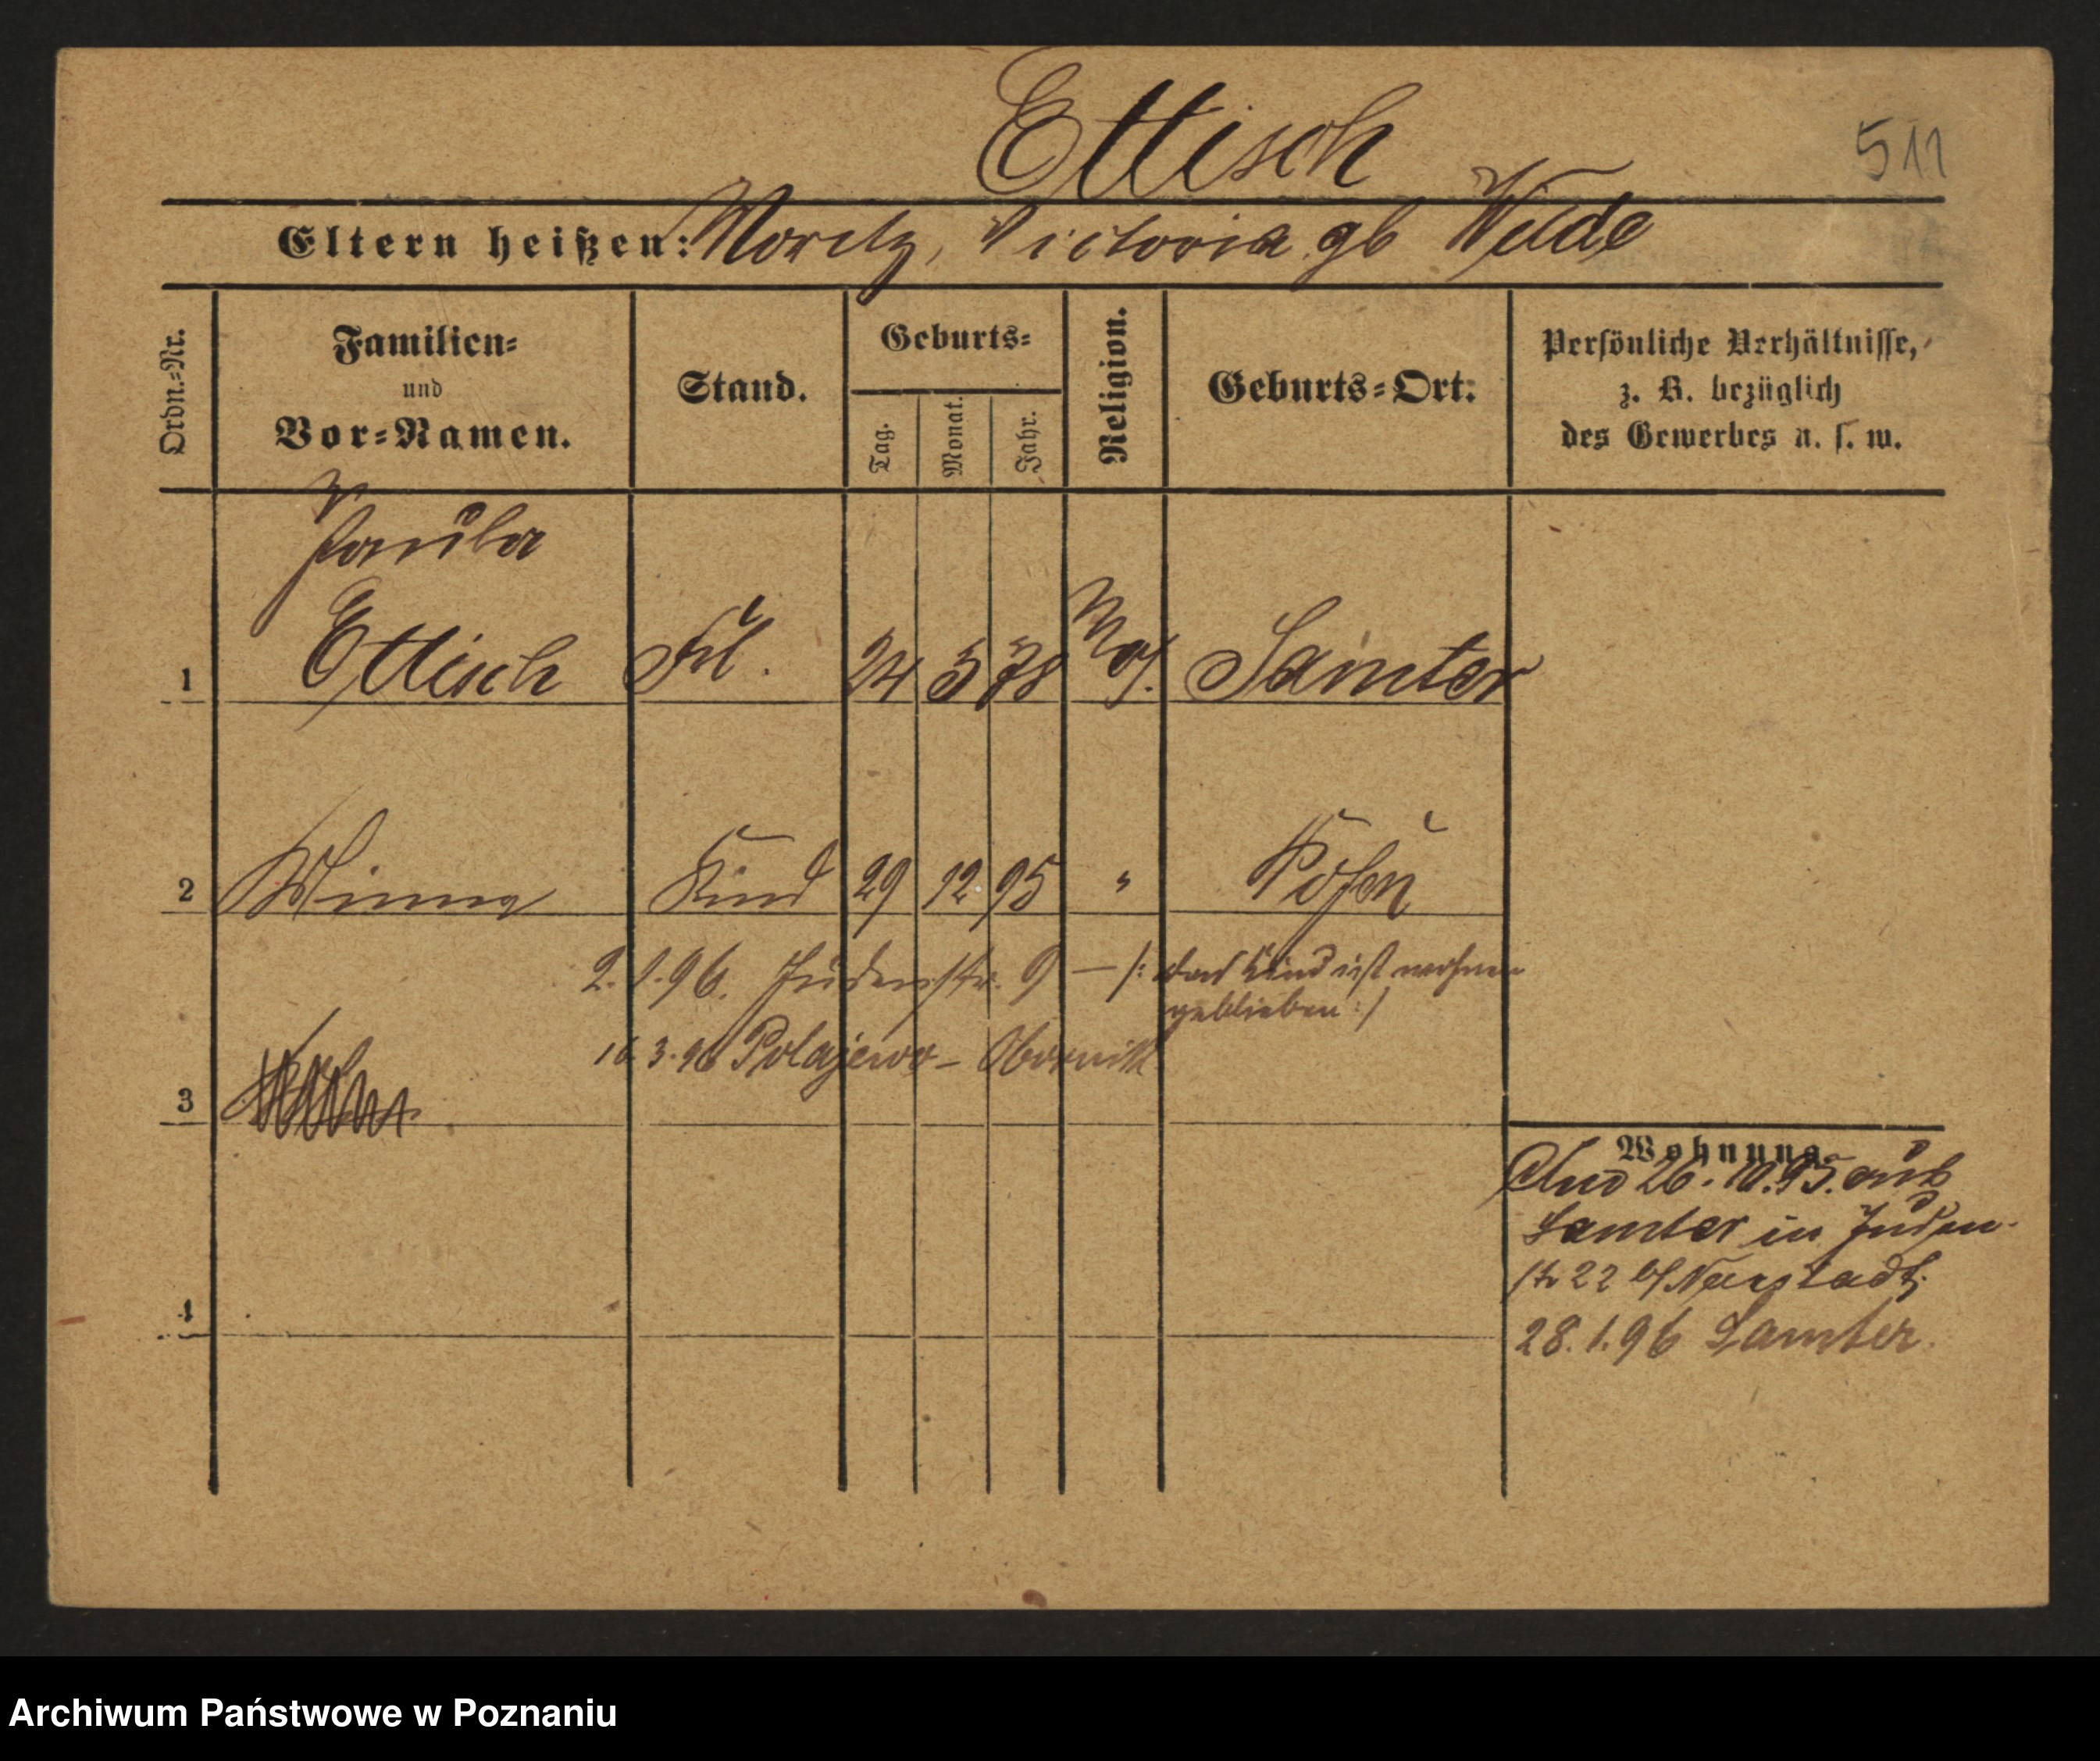 Ettisch
511
Eltern heißen: Moritz, Victoria gb Wilde
Ordn.-Nr.
Familien-
und
Vor-Namen.
Stand.
Geburts-
Tag.
Monat.
Jahr.
Religion.
Geburts-Ort:
Persönliche Verhältnisse,
z. B. bezüglich
des Gewerbes u. s. w.
Paula
1 Ettisch Frl. 24 5 78 Mos. Samter
2 Minna Kind 29 12. 95 " Posen
2.1.96. Judenstr. 9 — /: das Kind ist wohnen
geblieben :/
16.3.96 Polajewo - Obornik
3
Wohnung.
26.10.95. aus
Samter in Juden-
str 22 b/
28.1.96 Samter.
4
Archiwum Państwowe w Poznaniu